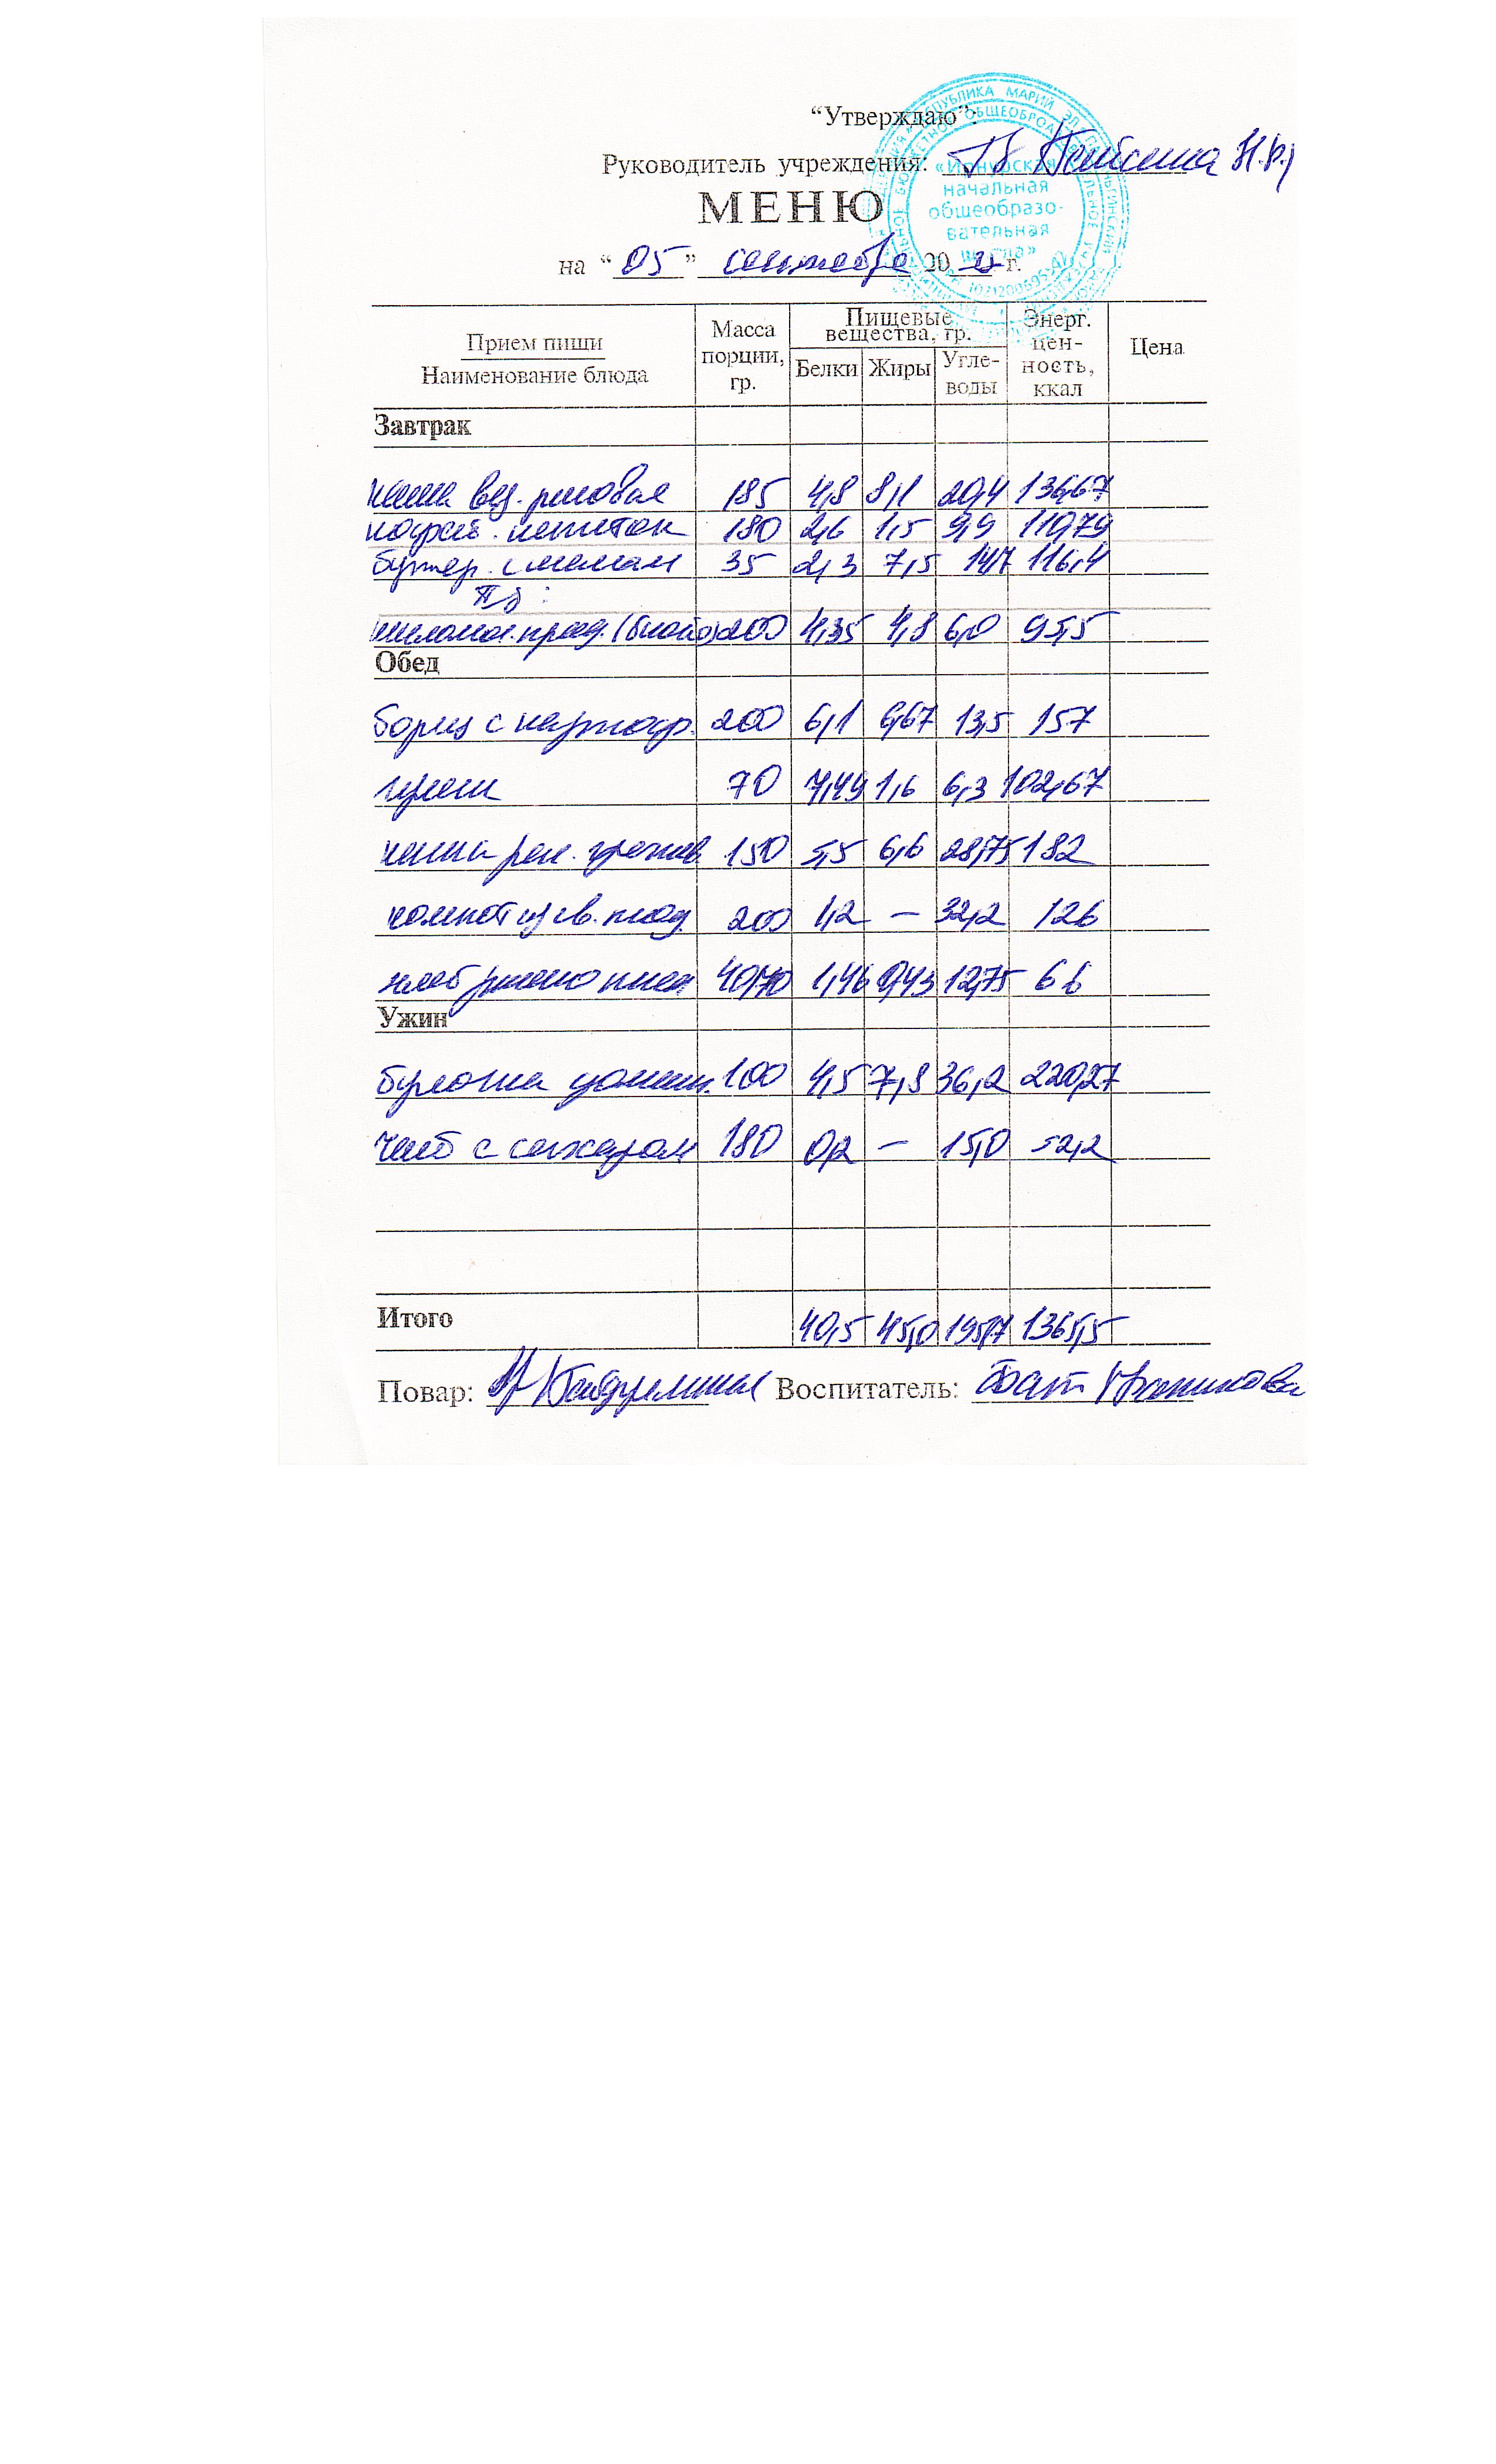 “Утверждаю”:
Руководитель учреждения:
«Йошнурская
начальная
общеобразо-
вательная
МЕНЮ
на “05” сентября 20 г.
Прием пищи Наименование блюда Масса порции, гр. Пищевые вещества, гр. Белки Жиры Угле- воды Энерг. цен- ность, ккал Цена
Завтрак
каша вяз. рисовая 185 4,8 8,1 20,4 136,67
кофей. напиток 180 2,6 1,5 9,9 110,79
бутер. с маслом 35 2,3 7,5 14,7 116,4
кисломол. прод. 200 4,35 4,8 6,0 95,5
Обед
борщ с картоф. 200 6,1 6,67 13,5 157
гуляш 70 7,49 1,6 6,3 102,67
каша рас. гречнев. 150 5,5 6,6 28,75 182
компот из св. плод. 200 1,2 – 32,2 126
хлеб ржано пшен 40/70 1,46 0,43 12,75 66
Ужин
булочка домашн. 100 4,5 7,8 36,2 220,27
чай с сахаром 180 0,2 – 15,0 52,2
Итого 40,5 45,0 195,7 1365,5
Повар: Воспитатель: